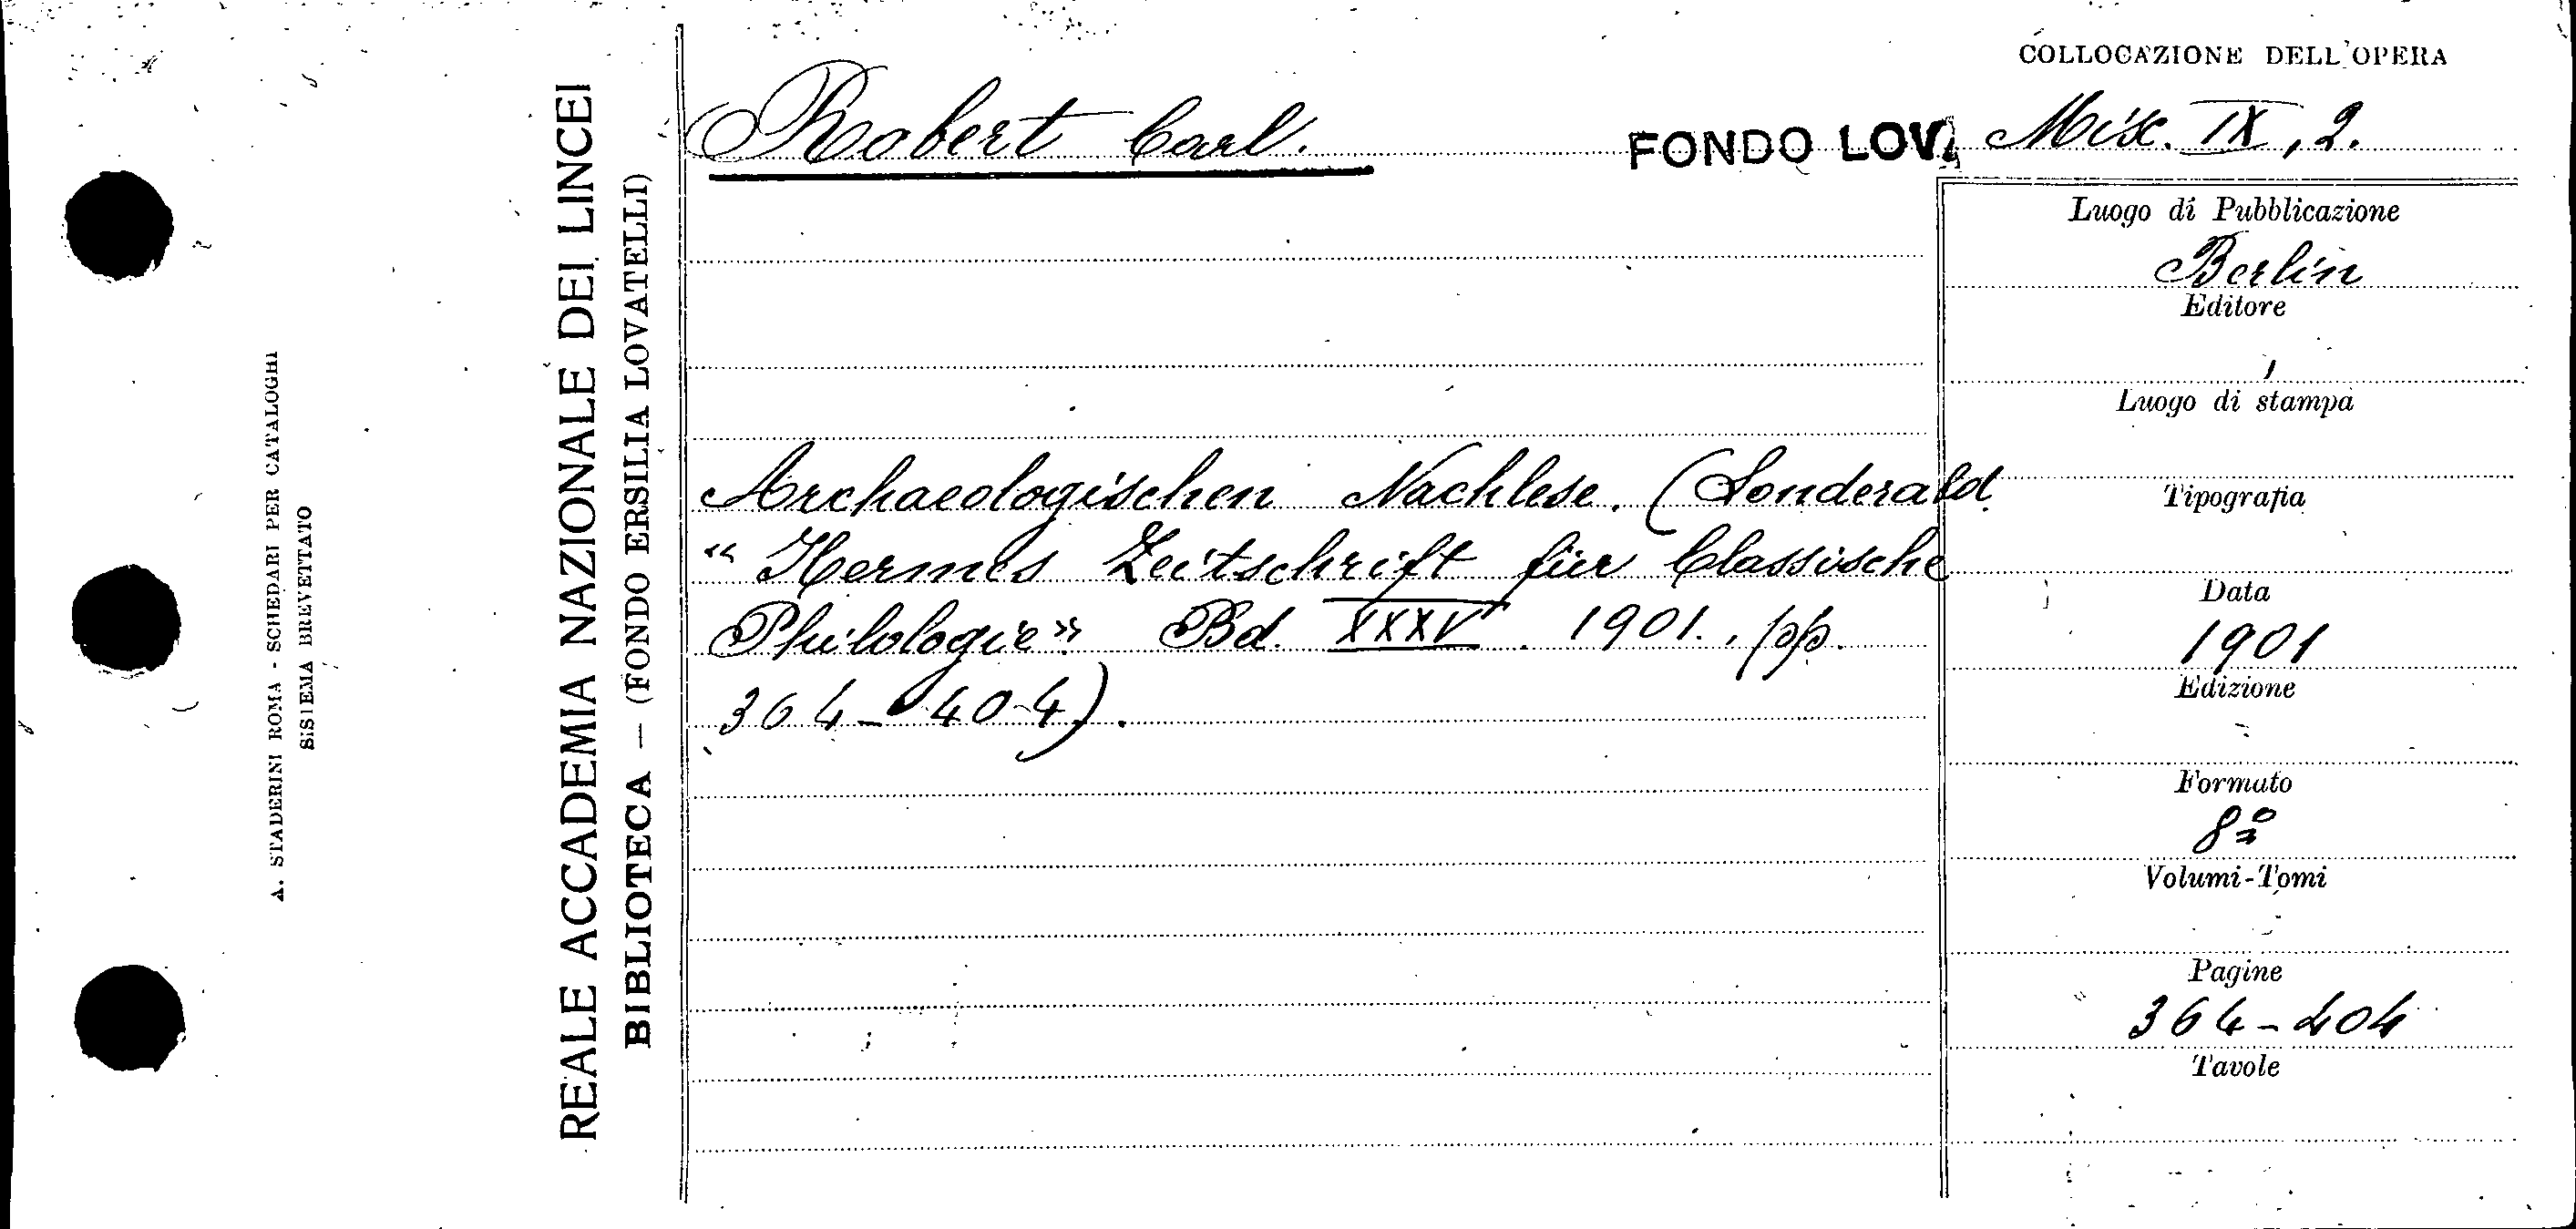 A. STADERINI ROMA - SCHEDARI PER CATALOGHI
SISTEMA BREVETTATO
REALE ACCADEMIA NAZIONALE DEI LINCEI
BIBLIOTECA — (FONDO ERSILIA LOVATELLI)
COLLOCAZIONE DELL'OPERA
Robert Carl. FONDO LOV. Misc. IX, 2.
Archaeologischen Nachlese. (Sonderabd.
“ Hermes Zeitschrift für Classische
Philologie” Bd. XXXV. 1901., pp.
364-404).
Luogo di Pubblicazione
Berlin
Editore
Luogo di stampa
Tipografia
Data
1901
Edizione
Formato
8º
Volumi-Tomi
Pagine
364-404
Tavole